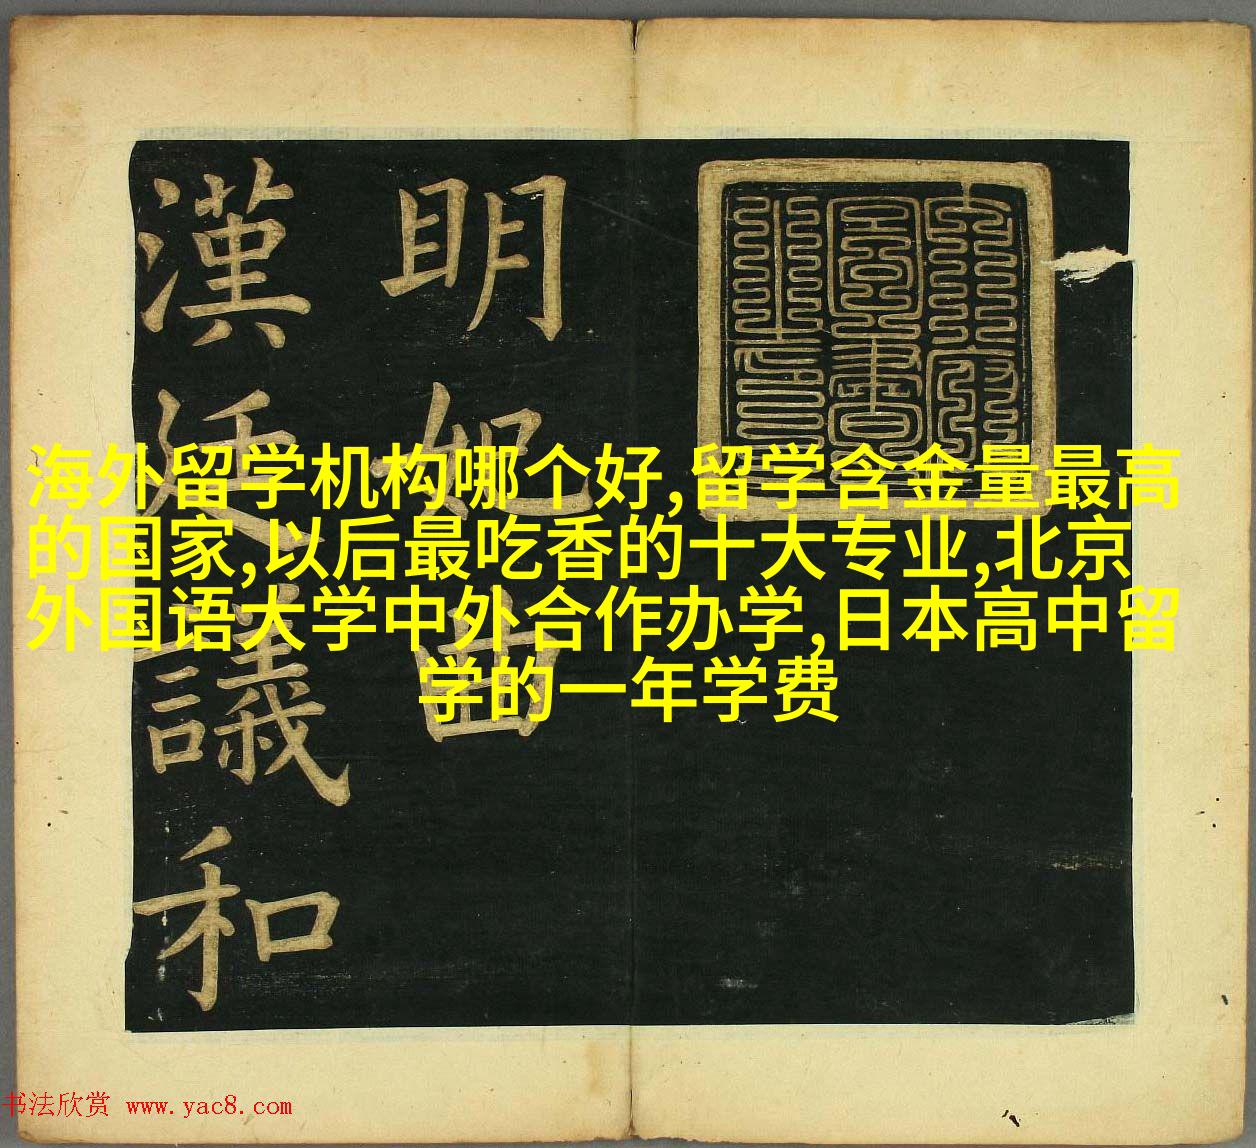 明妃曲
漢廷議和
海外留学机构哪个好,留学含金量最高
的国家,以后最吃香的十大专业,北京
外国语大学中外合作办学,日本高中留
学的一年学费
书法欣赏 www.yac8.com